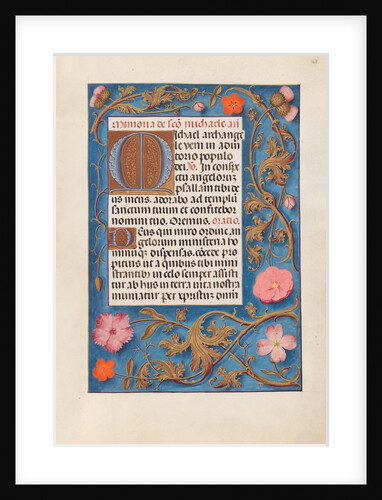 Memoria de sco michaele ar
Michael archange
le veni in adiu
torio populo
dei. V. In conspe
ctu angelorum
psallam tibi de
us meus. adorabo ad templum
sanctum tuum et confitebor
nomini tuo. Oremus. oratio.
Deus qui miro ordine an
gelorum ministeria ho
minumque dispensas. concede pro
pitius ut a quibus tibi mini
strantibus in celo semper assisti
tur ab hiis in terra vita nostra
muniatur per xpristum dnm